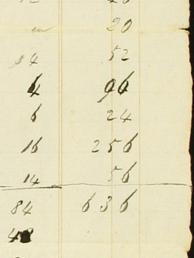 20
14 52
4 96
6 24
16 256
14 56
84 636
48